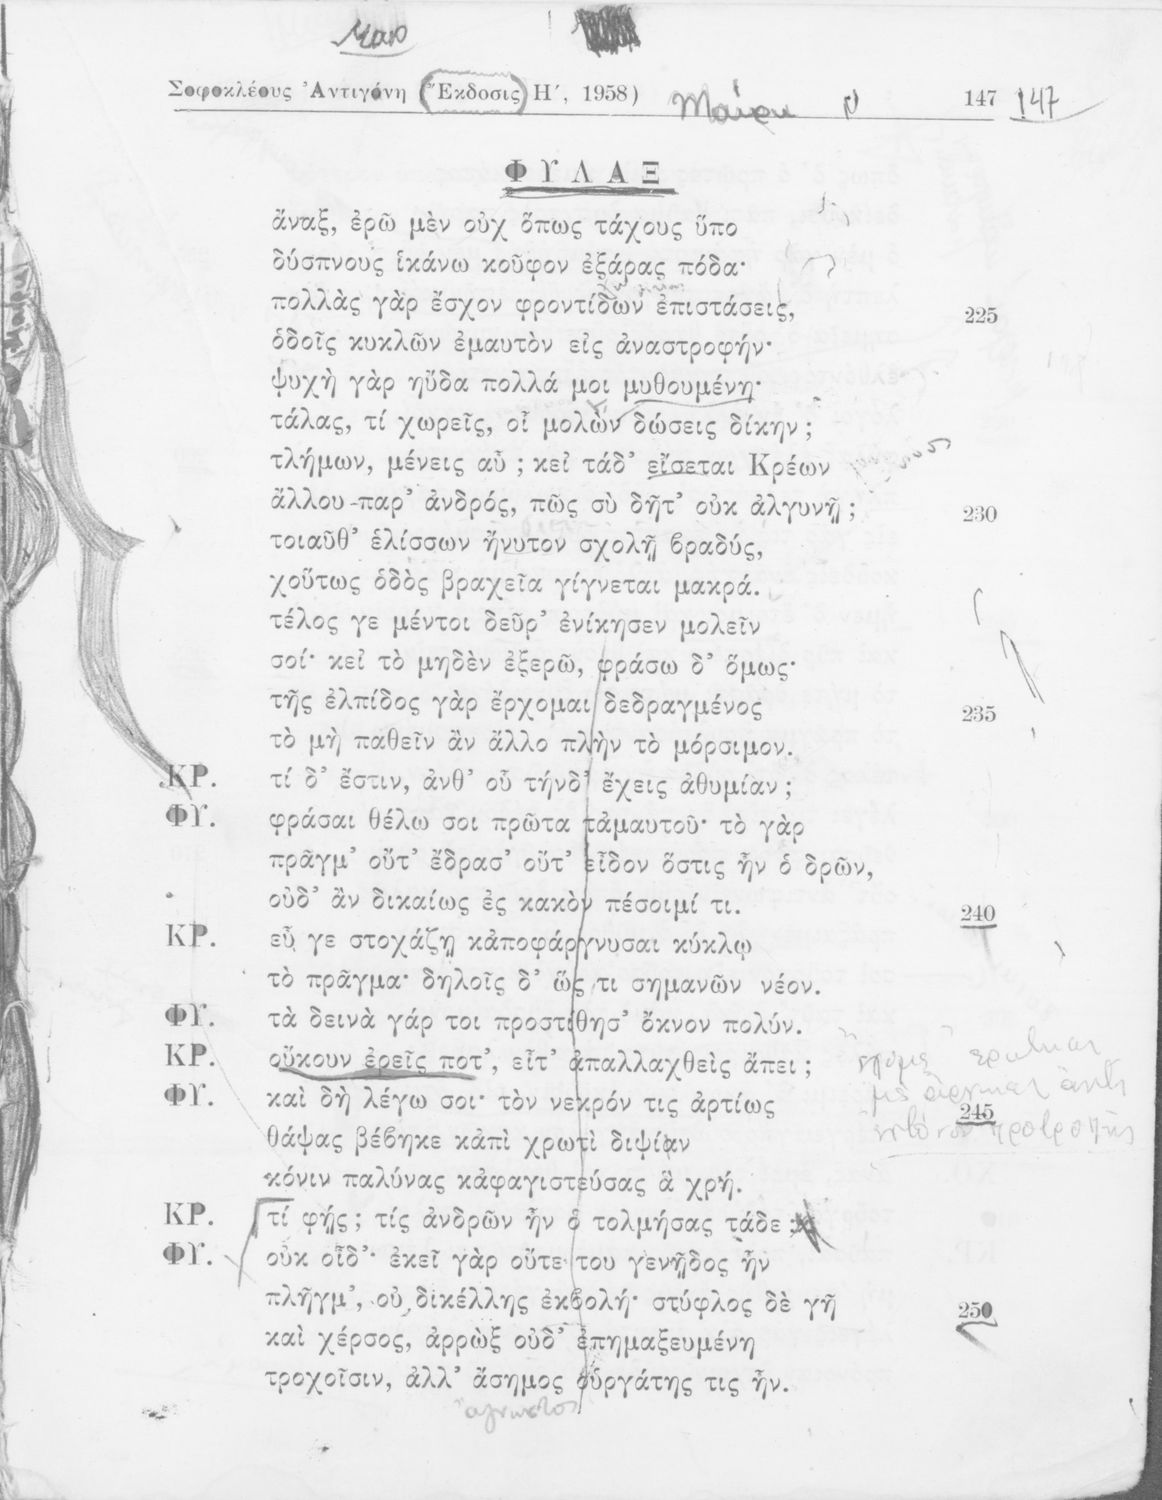 Σοφοκλέους Ἀντιγόνη (Ἔκδοσις Η΄, 1958) 147 147
ΦΥΛΑΞ
ἄναξ, ἐρῶ μὲν οὐχ ὅπως τάχους ὕπο
δύσπνους ἱκάνω κοῦφον ἐξάρας πόδα·
πολλὰς γὰρ ἔσχον φροντίδων ἐπιστάσεις, 225
ὁδοῖς κυκλῶν ἐμαυτὸν εἰς ἀναστροφήν·
ψυχὴ γὰρ ηὔδα πολλά μοι μυθουμένη·
τάλας, τί χωρεῖς, οἷ μολὼν δώσεις δίκην ;
τλήμων, μένεις αὖ ; κεἰ τάδ’ εἴσεται Κρέων
ἄλλου παρ’ ἀνδρός, πῶς σὺ δῆτ’ οὐκ ἀλγυνῇ ; 230
τοιαῦθ’ ἑλίσσων ἤνυτον σχολῇ βραδύς,
χοὕτως ὁδὸς βραχεῖα γίγνεται μακρά.
τέλος γε μέντοι δεῦρ’ ἐνίκησεν μολεῖν
σοί· κεἰ τὸ μηδὲν ἐξερῶ, φράσω δ’ ὅμως·
τῆς ἐλπίδος γὰρ ἔρχομαι δεδραγμένος 235
τὸ μὴ παθεῖν ἂν ἄλλο πλὴν τὸ μόρσιμον.
ΚΡ. τί δ’ ἔστιν, ἀνθ’ οὗ τήνδ’ ἔχεις ἀθυμίαν ;
ΦΥ. φράσαι θέλω σοι πρῶτα τἀμαυτοῦ· τὸ γὰρ
πρᾶγμ’ οὔτ’ ἔδρασ’ οὔτ’ εἶδον ὅστις ἦν ὁ δρῶν,
οὐδ’ ἂν δικαίως ἐς κακὸν πέσοιμί τι. 240
ΚΡ. εὖ γε στοχάζῃ κἀποφάργνυσαι κύκλῳ
τὸ πρᾶγμα· δηλοῖς δ’ ὥς τι σημανῶν νέον.
ΦΥ. τὰ δεινὰ γάρ τοι προστίθησ’ ὄκνον πολύν.
ΚΡ. οὔκουν ἐρεῖς ποτ’, εἶτ’ ἀπαλλαχθεὶς ἄπει ;
ΦΥ. καὶ δὴ λέγω σοι· τὸν νεκρόν τις ἀρτίως 245
θάψας βέβηκε κἀπὶ χρωτὶ διψίαν
κόνιν παλύνας κἀφαγιστεύσας ἃ χρή.
ΚΡ. τί φῄς ; τίς ἀνδρῶν ἦν ὁ τολμήσας τάδε ;
ΦΥ. οὐκ οἶδ’· ἐκεῖ γὰρ οὔτε του γενῇδος ἦν
πλῆγμ’, οὐ δικέλλης ἐκβολή· στύφλος δὲ γῆ 250
καὶ χέρσος, ἀρρὼξ οὐδ’ ἐπημαξευμένη
τροχοῖσιν, ἀλλ’ ἄσημος οὑργάτης τις ἦν.